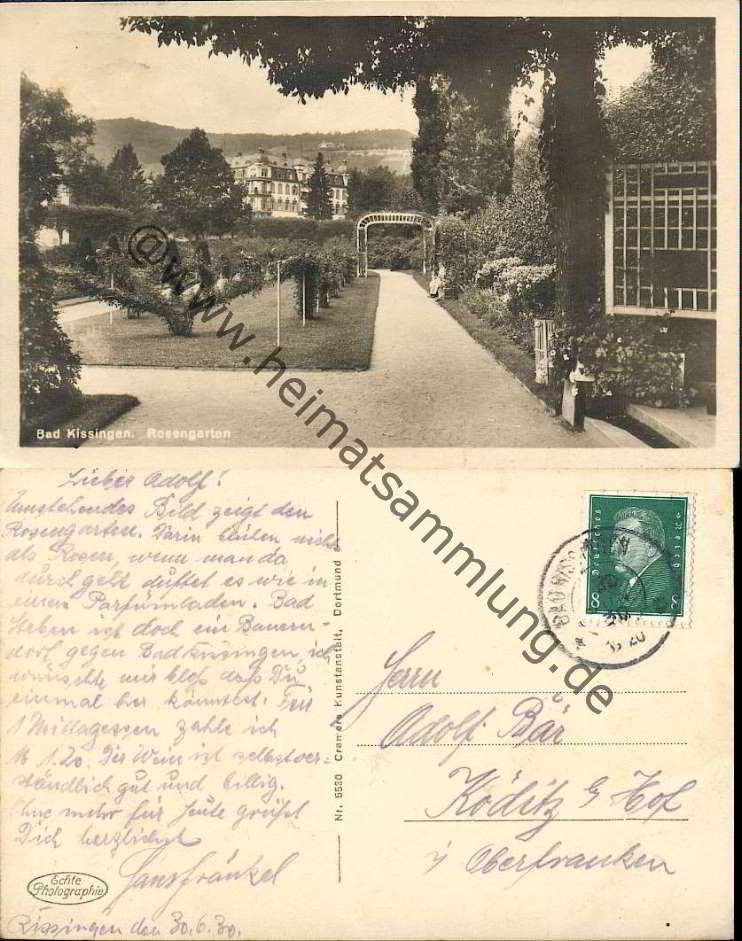 Bad Kissingen. Rosengarten
@www.heimatsammlung.de
Lieber Adolf!
Umstehendes Bild zeigt den
Rosengarten. Darin blühen nichts
als Rosen, wenn man da
durch geht duftet es wie in
einem Parfümladen. Bad
Steben ist doch ein Bauern-
dorf gegen Bad Kissingen, ich
wünschte nur blos daß Du
einmal her könntest. Für
1 Mittagessen zahle ich
M 1.20. Der Wein ist selbstver=
ständlich gut und billig.
Ohne mehr für heute grüßt
Dich herzlichst
Hans Fränkel
Echte
Photographie
Kissingen den 30.6.30.
Nr. 5530 Cramers Kunstanstalt, Dortmund
Deutsches Reich
8 8
BAD KISSINGEN
Herrn
Adolf Bär
Köditz b/ Hof
i/ Oberfranken